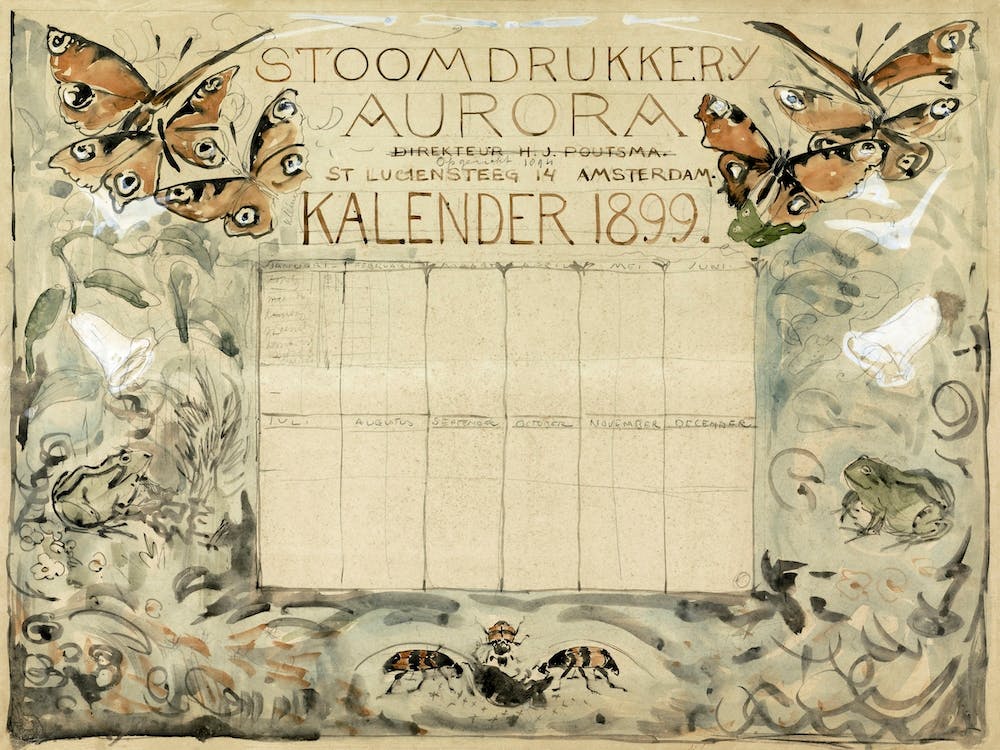 STOOMDRUKKERY
AURORA
DIREKTEUR H. J. POUTSMA.
Opgericht
ST LUCIENSTEEG 14 AMSTERDAM.
KALENDER 1899.
JANUARI FEBRUARI MEI JUNI
JULI AUGUSTUS SEPTEMBER OCTOBER NOVEMBER DECEMBER